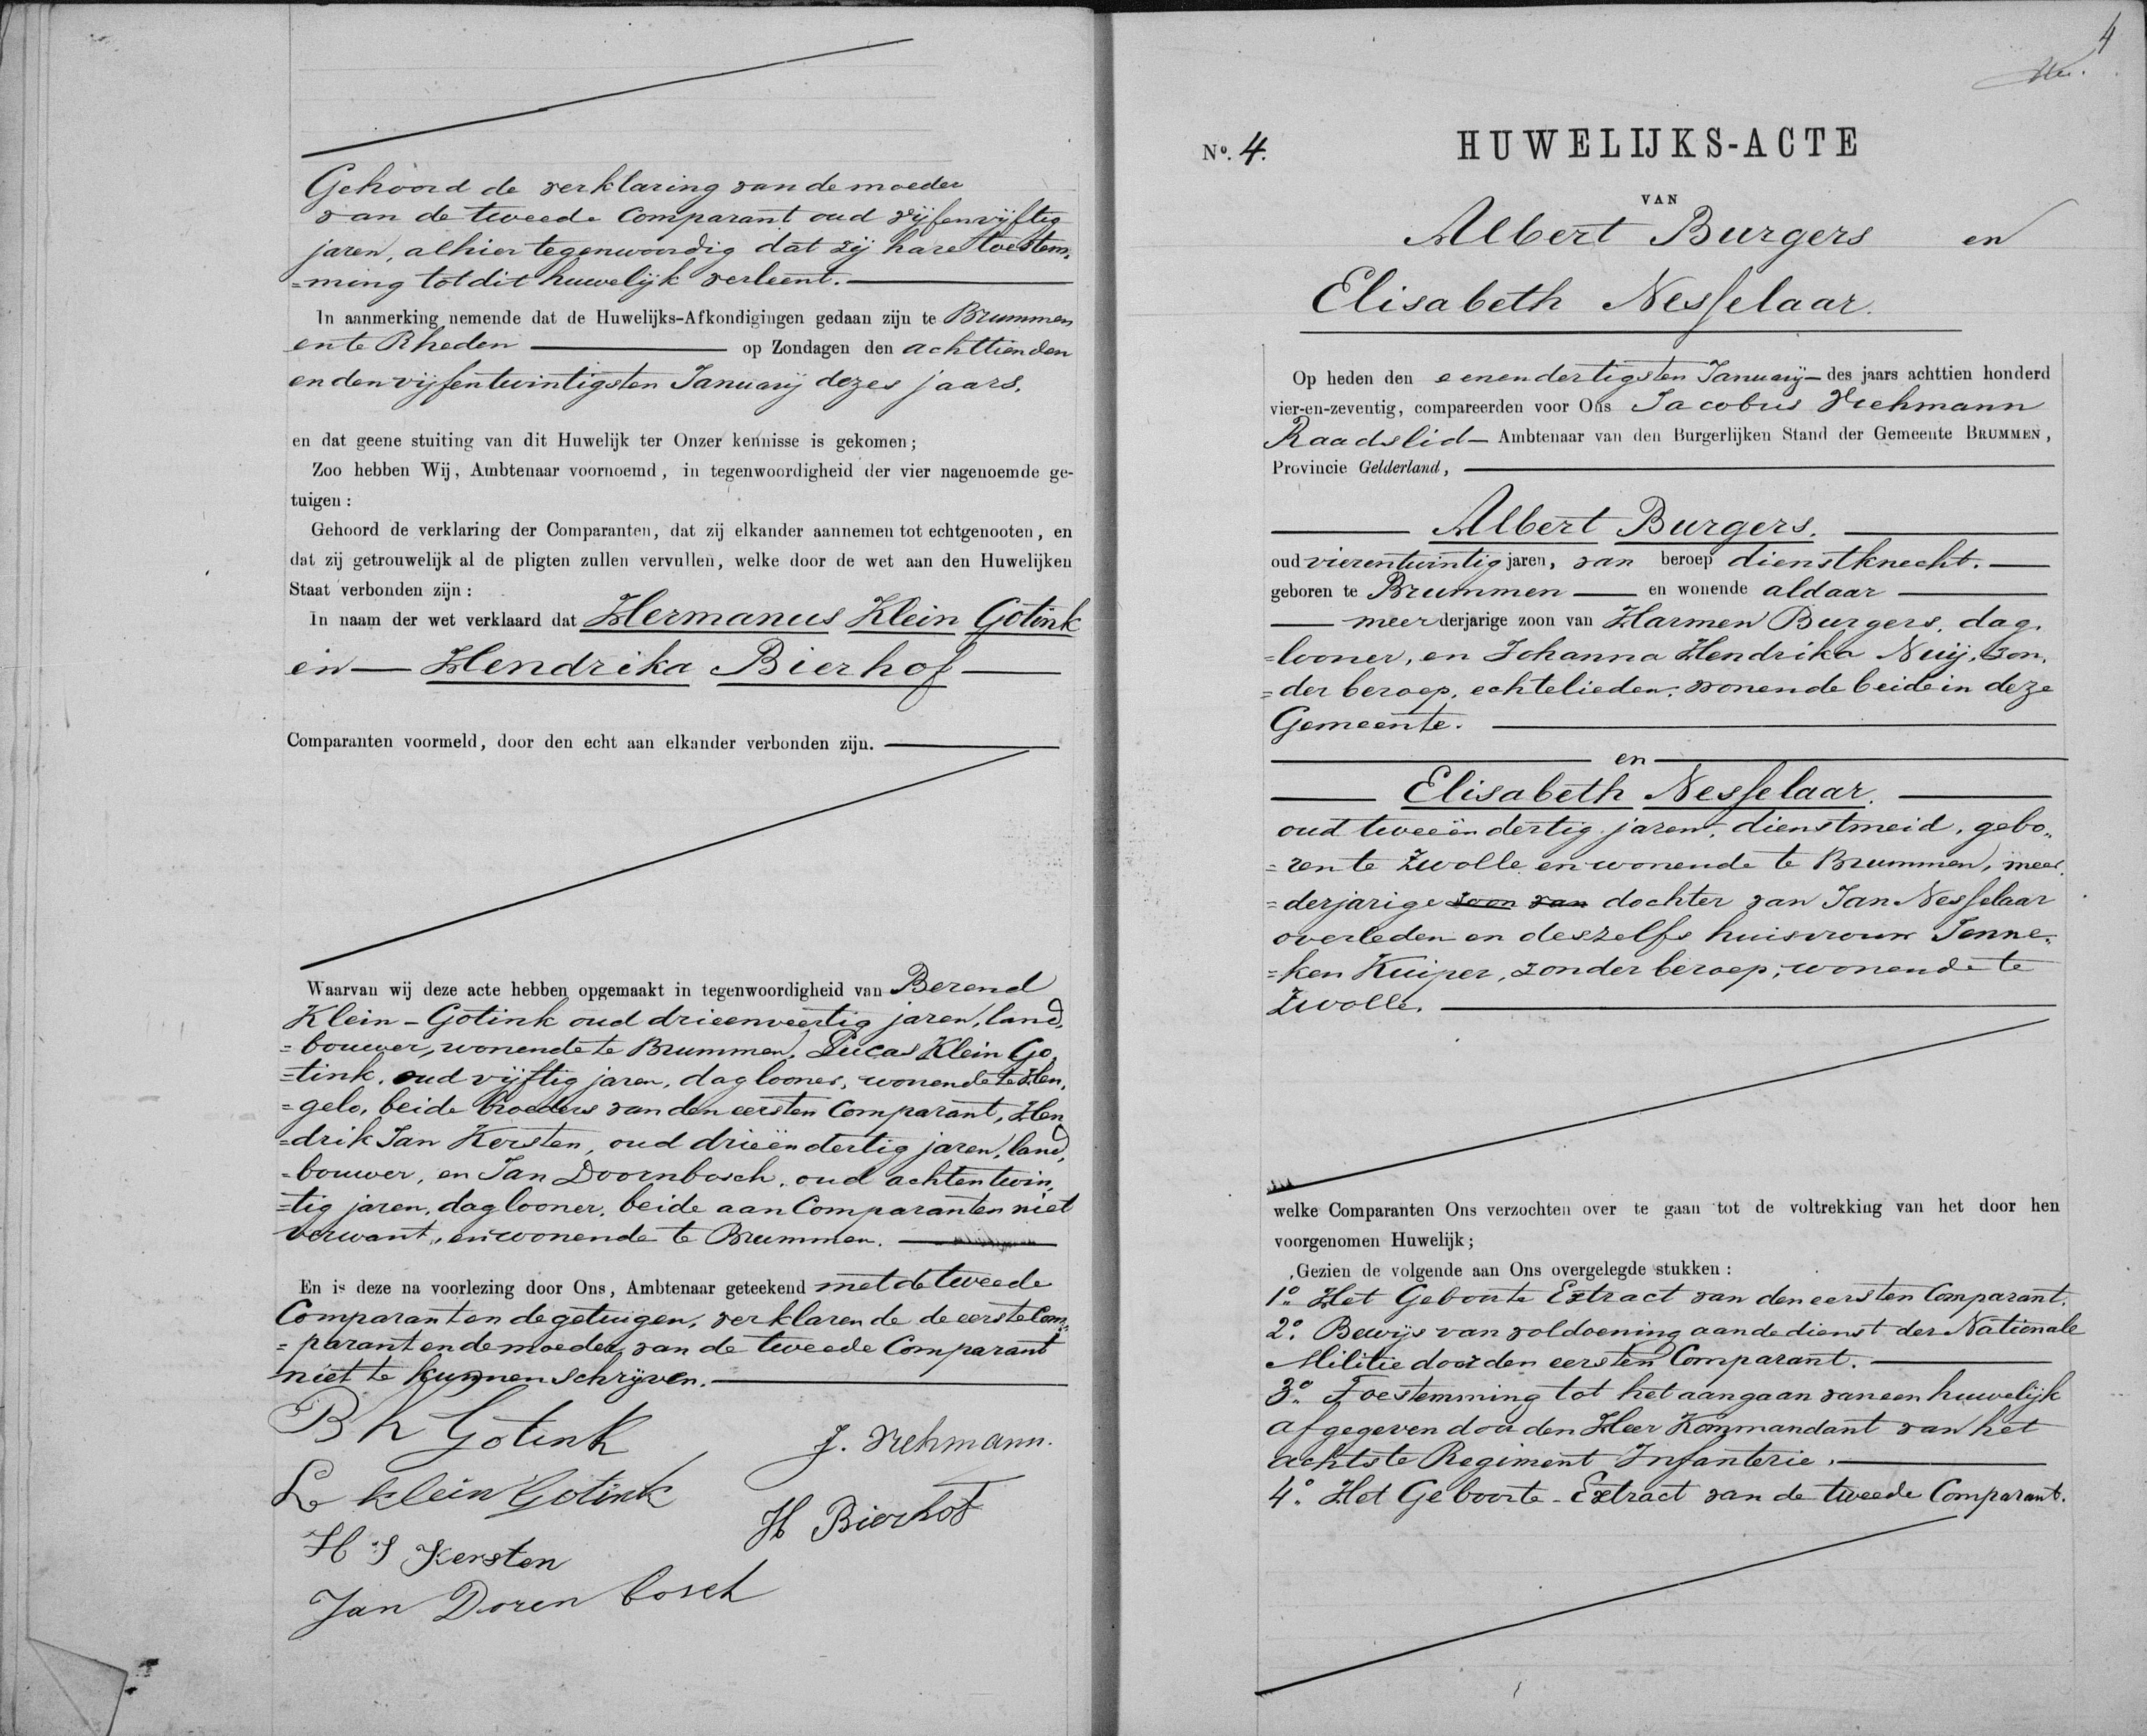 Gehoord de verklaring van de moeder
van de tweede Comparant oud vijfenvijftig
jaren, alhier tegenwoordig dat zij hare toestem„
=ming tot dit huwelijk verleent.
In aanmerking nemende dat de Huwelijks-Afkondigingen gedaan zijn te Brummen
en te Rheden op Zondagen den achttienden
en den vijfentwintigsten Januarij dezes jaars.
en dat geene stuiting van dit Huwelijk ter Onzer kennisse is gekomen;
Zoo hebben Wij, Ambtenaar voornoemd, in tegenwoordigheid der vier nagenoemde ge-
tuigen:
Gehoord de verklaring der Comparanten, dat zij elkander aannemen tot echtgenooten, en
dat zij getrouwelijk al de pligten zullen vervullen, welke door de wet aan den Huwelijken
Staat verbonden zijn:
In naam der wet verklaard dat Hermanus Klein Gotink
en Hendrika Bierhof
Comparanten voormeld, door den echt aan elkander verbonden zijn.
Waarvan wij deze acte hebben opgemaakt in tegenwoordigheid van Berend
Klein-Gotink oud drieenveertig jaren, land„
=bouwer, wonende te Brummen, Lucas Klein Go„
=tink, oud vijftig jaren, daglooner, wonende te Hen„
=gelo, beide broeders van den eersten Comparant, Hen„
=drik Jan Kersten, oud drieëndertig jaren, land„
=bouwer, en Jan Doornbosch, oud achtentwin„
=tig jaren, daglooner, beide aan Comparanten niet
verwant, en wonende te Brummen.
En is deze na voorlezing door Ons, Ambtenaar geteekend met de tweede
Comparant en de getuigen, verklarende de eerste Com„
=parant en de moeder van de tweede Comparant
niet te kunnen schrijven.
B K Gotink
J. Vrehmann.
L klein Gotink
H Bierhof
H J Kersten
Jan Doren bosch
4
No. 4.
HUWELIJKS-ACTE
VAN
Albert Burgers en
Elisabeth Nesselaar.
Op heden den eenendertigsten Januarij des jaars achttien honderd
vier-en-zeventig, compareerden voor Ons Jacobus Vrehmann
Raadslid Ambtenaar van den Burgerlijken Stand der Gemeente BRUMMEN,
Provincie Gelderland,
Albert Burgers.
oud vierentwintig jaren, van beroep dienstknecht.
geboren te Brummen en wonende aldaar
meerderjarige zoon van Harmen Burgers, dag„
=looner, en Johanna Hendrika Nuij, zon„
=der beroep, echtelieden, wonende beide in deze
Gemeente.
en
Elisabeth Nesselaar.
oud tweeëndertig jaren, dienstmeid, gebo„
=ren te Zwolle en wonende te Brummen, meer„
=derjarige zoon van dochter van Jan Nesselaar
overleden en deszelfs huisvrouw Jenne„
=ken Kuiper, zonder beroep, wonende te
Zwolle.
welke Comparanten Ons verzochten over te gaan tot de voltrekking van het door hen
voorgenomen Huwelijk;
Gezien de volgende aan Ons overgelegde stukken:
1o. Het Geboorte Extract van den eersten Comparant.
2o. Bewijs van voldoening aan de dienst der Nationale
Militie door den eersten Comparant.
3o. Toestemming tot het aangaan van een huwelijk
afgegeven door den Heer Kommandant van het
achtste Regiment Infanterie.
4o. Het Geboorte-Extract van de tweede Comparant.